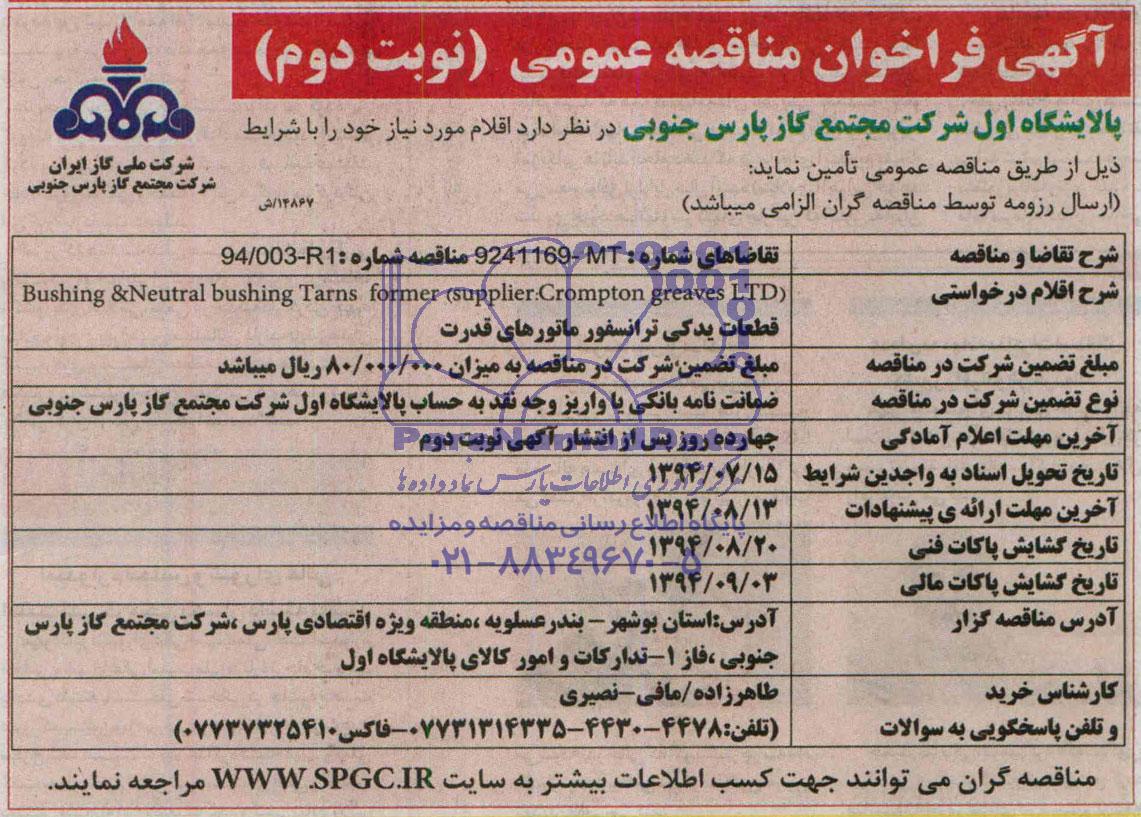 آگهی فراخوان مناقصه عمومی (نوبت دوم)
شرکت ملی گاز ایران
شرکت مجتمع گاز پارس جنوبی
۱۴۸۶۷/ش
پالایشگاه اول شرکت مجتمع گاز پارس جنوبی در نظر دارد اقلام مورد نیاز خود را با شرایط
ذیل از طریق مناقصه عمومی تأمین نماید:
(ارسال رزومه توسط مناقصه گران الزامی میباشد)
شرح تقاضا و مناقصه تقاضاهای شماره : 9241169- MT مناقصه شماره :94/003-R1
شرح اقلام درخواستی Bushing &Neutral bushing Tarns former (supplier:Crompton greaves LTD)
قطعات یدکی ترانسفور ماتورهای قدرت
مبلغ تضمین شرکت در مناقصه مبلغ تضمین شرکت در مناقصه به میزان ۸۰/۰۰۰/۰۰۰ ریال میباشد
نوع تضمین شرکت در مناقصه ضمانت نامه بانکی یا واریز وجه نقد به حساب پالایشگاه اول شرکت مجتمع گاز پارس جنوبی
آخرین مهلت اعلام آمادگی چهارده روز پس از انتشار آگهی نوبت دوم
تاریخ تحویل اسناد به واجدین شرایط ۱۳۹۴/۰۷/۱۵
آخرین مهلت ارائه ی پیشنهادات ۱۳۹۴/۰۸/۱۳
تاریخ گشایش پاکات فنی ۱۳۹۴/۰۸/۲۰
تاریخ گشایش پاکات مالی ۱۳۹۴/۰۹/۰۳
آدرس مناقصه گزار آدرس:استان بوشهر– بندرعسلویه ،منطقه ویژه اقتصادی پارس ،شرکت مجتمع گاز پارس
جنوبی ،فاز ۱–تدارکات و امور کالای پالایشگاه اول
کارشناس خرید طاهرزاده/مافی–نصیری
و تلفن پاسخگویی به سوالات (تلفن:۴۴۷۸–۴۴۳۰–۰۷۷۳۱۳۱۴۳۳۵–فاکس۰۷۷۳۷۳۲۵۴۱۰)
مناقصه گران می توانند جهت کسب اطلاعات بیشتر به سایت WWW.SPGC.IR مراجعه نمایند.
ParsNamadData
مرکز فرآوری اطلاعات پارس نماد داده ها
پایگاه اطلاع رسانی مناقصه و مزایده
۰۲۱–۸۸۳۴۹۶۷۰–۵